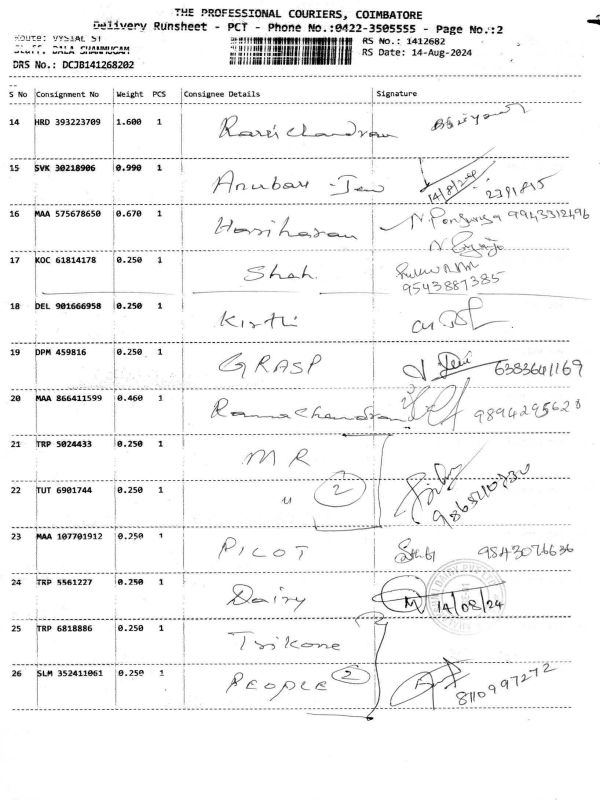 THE PROFESSIONAL COURIERS, COIMBATORE
Delivery Runsheet - PCT - Phone No.:0422-3505555 - Page No.:2
Route: VYSIAL ST
RS No.: 1412682
Staff: BALA SHANMUGAM
RS Date: 14-Aug-2024
DRS No.: DCJB141268202
S No Consignment No Weight PCS Consignee Details Signature
14 HRD 393223709 1.600 1
15 SVK 30218906 0.990 1 14/8/24
16 MAA 575678650 0.670 1 Hariharan 9943312496
17 KOC 61814178 0.250 1 Shah
9543887385
18 DEL 901666958 0.250 1 Kirthi
19 DPM 459816 0.250 1 GRASP 6383641169
20 MAA 866411599 0.460 1 Ramachandran 9894295628
21 TRP 5024433 0.250 1 MR
22 TUT 6901744 0.250 1 " 2
23 MAA 107701912 0.250 1 PILOT 9843076636
24 TRP 5561227 0.250 1 Dairy 14/08/24
25 TRP 6818886 0.250 1 Trikone
26 SLM 352411061 0.250 1 PEOPLE 2 8110997272